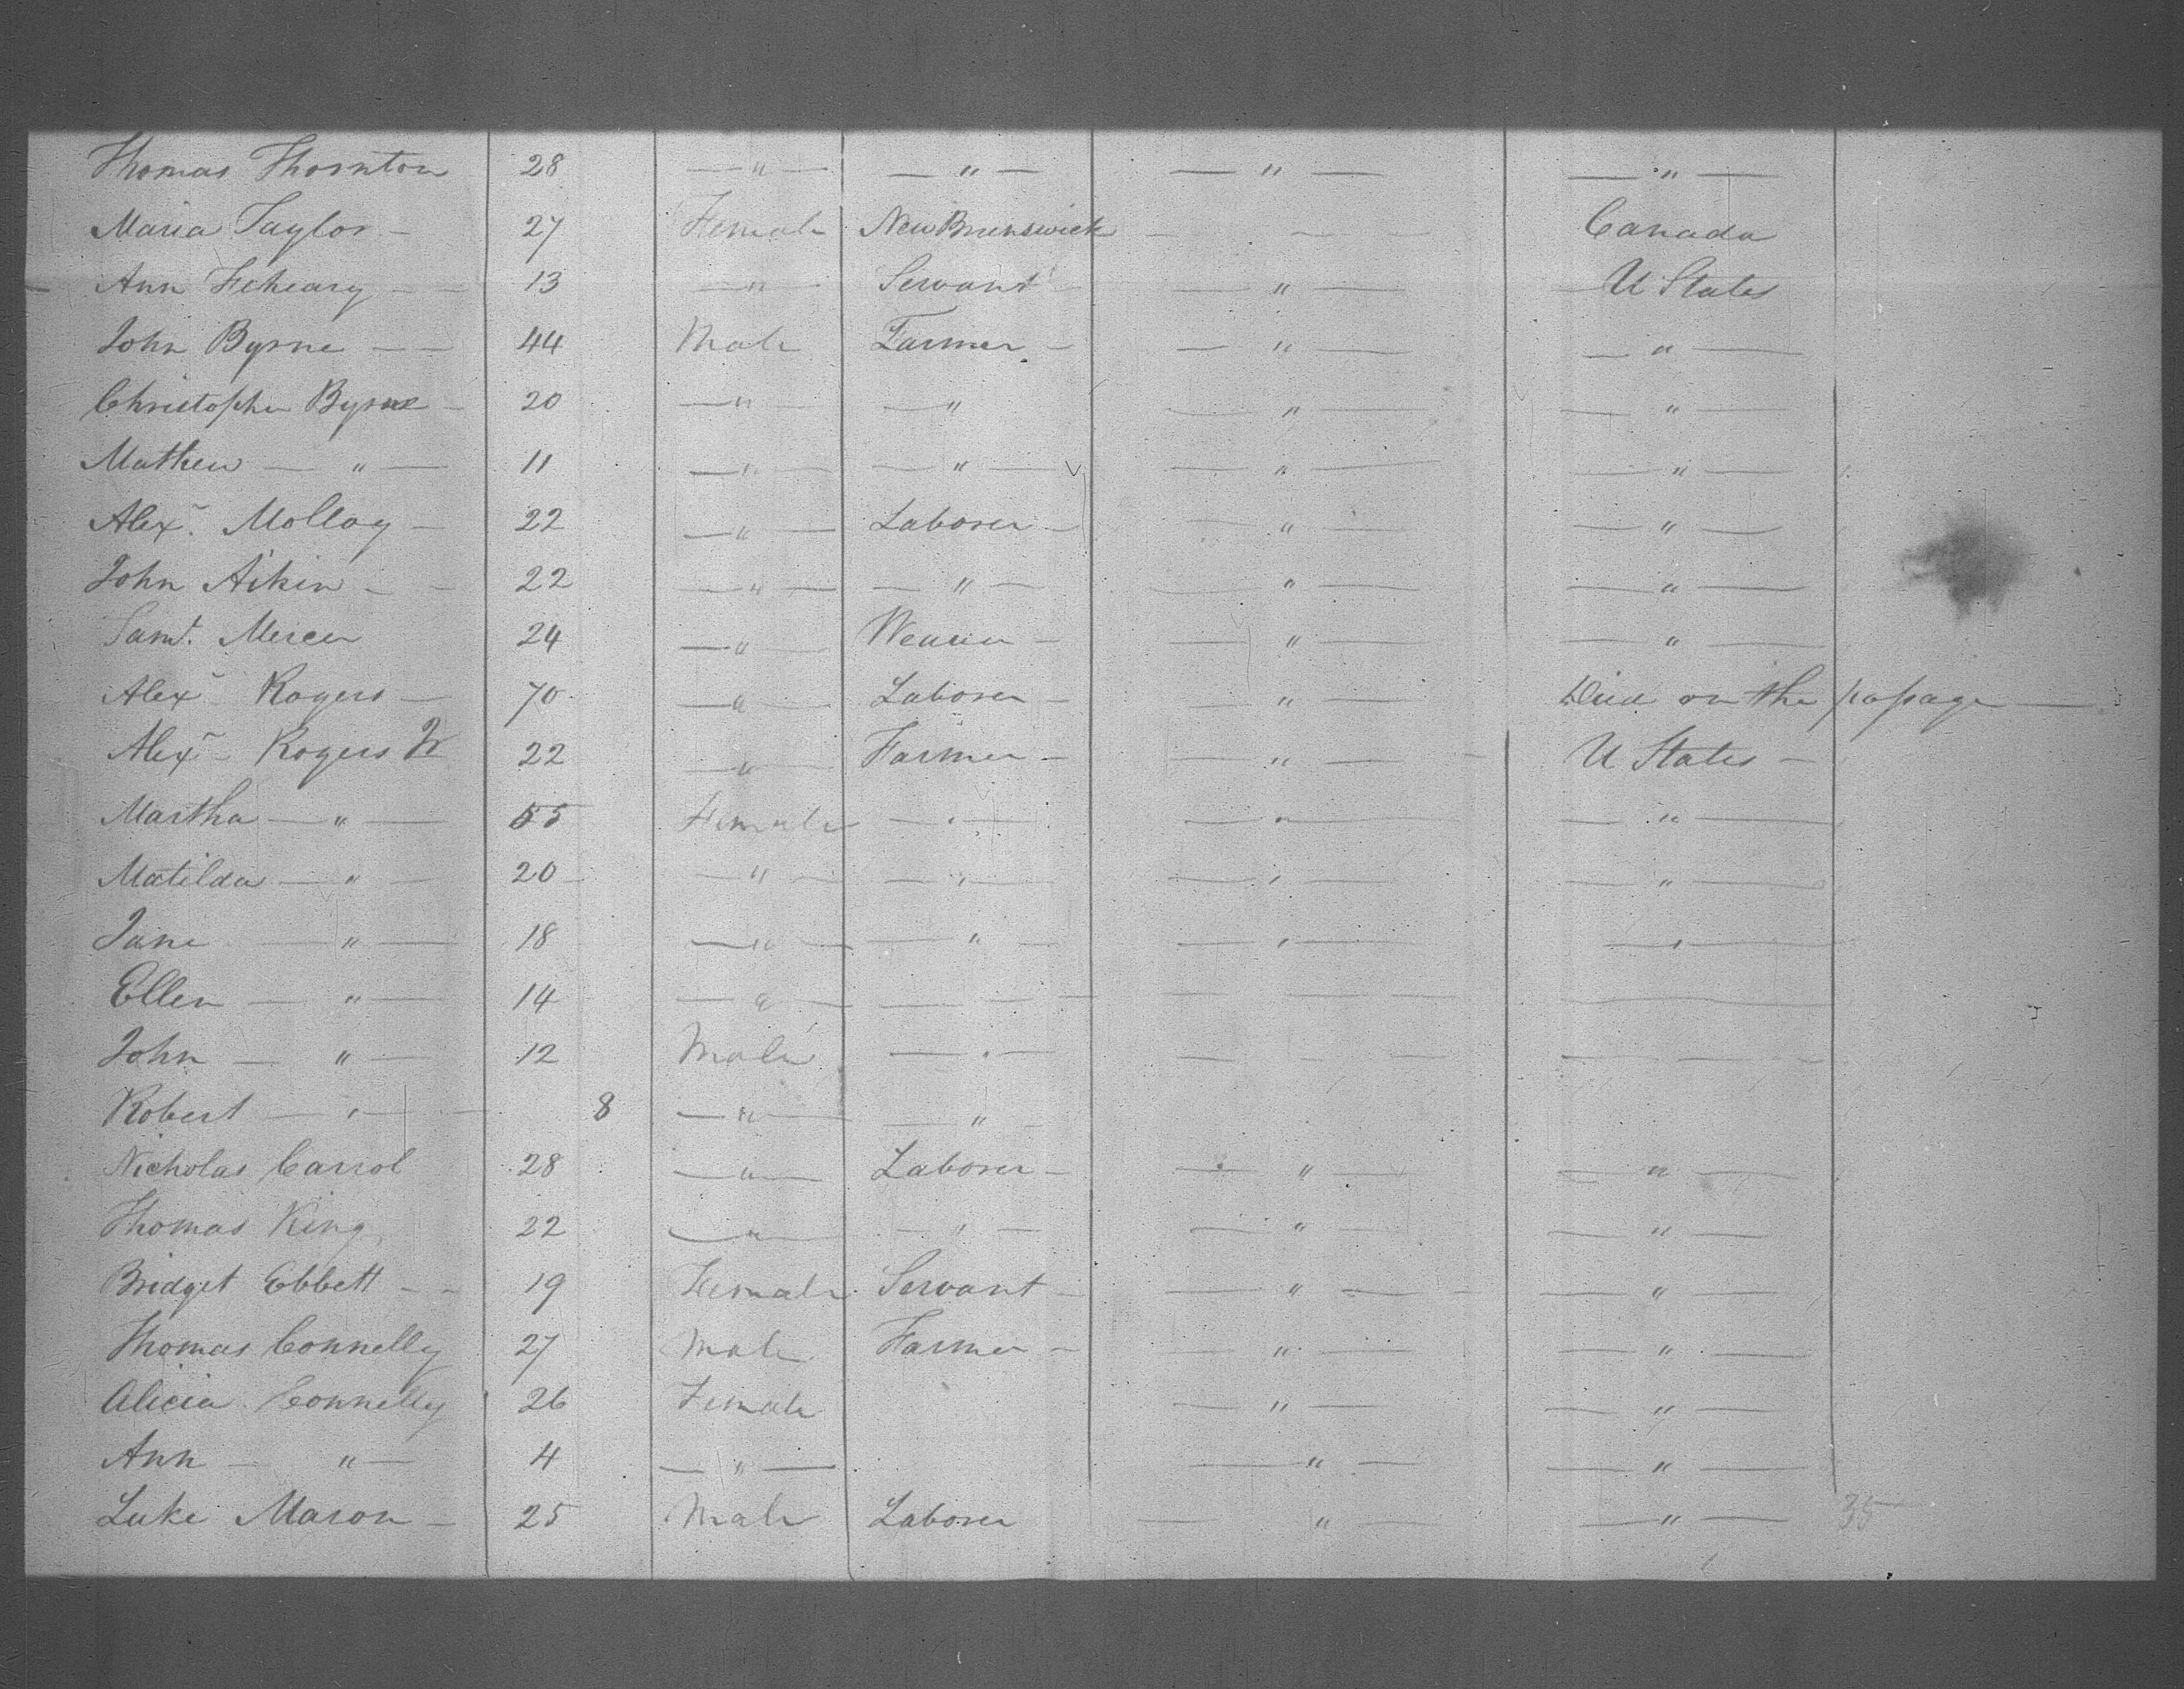 Thomas Thornton 28 — " — — " — — " — — " —
Maria Taylor — 27 Female New Brunswick — — — Canada
Ann Feheary — — 13 — " — Servant — — " — U States
John Byrne — — 44 Male Farmer — — " — — " —
Christopher Byrne — 20 — " — — " — " — — " —
Mathew — " — 11 — " — — " — — " — — " —
Alexr. Molloy — 22 — " — Laborer — — " — — " —
John Aikin — — 22 — " — — " — — " — — " —
Saml. Mercer 24 — " — Weaver — — " — — " —
Alexr Rogers — 70 — " — Laborer — — " — Died on the passage —
Alexr — Rogers Jr 22 — " — Farmer — — " — U States —
Martha — " — 55 Female — " — — " — — " —
Matilda — " — 20 — — " — — " — — " — — " —
Jane — " — 18 — " — — " — — " — — " —
Ellen — " — 14 — " — — — — — — — —
John — " — 12 Male — " — — — — — — —
Robert — " — 8 — " — — " —
Nicholas Carrol 28 — " — Laborer — — " — — " —
Thomas King 22 — " — — " — — " — — " —
Bridget Ebbett — — 19 Female Servant — — " — — " —
Thomas Connelly 27 Male Farmer — — " — — " —
Alicia Connelly 26 Female — " — — " —
Ann — " — 4 — " — — " — — " —
Luke Mason — 25 Male Laborer — " — — " — 35